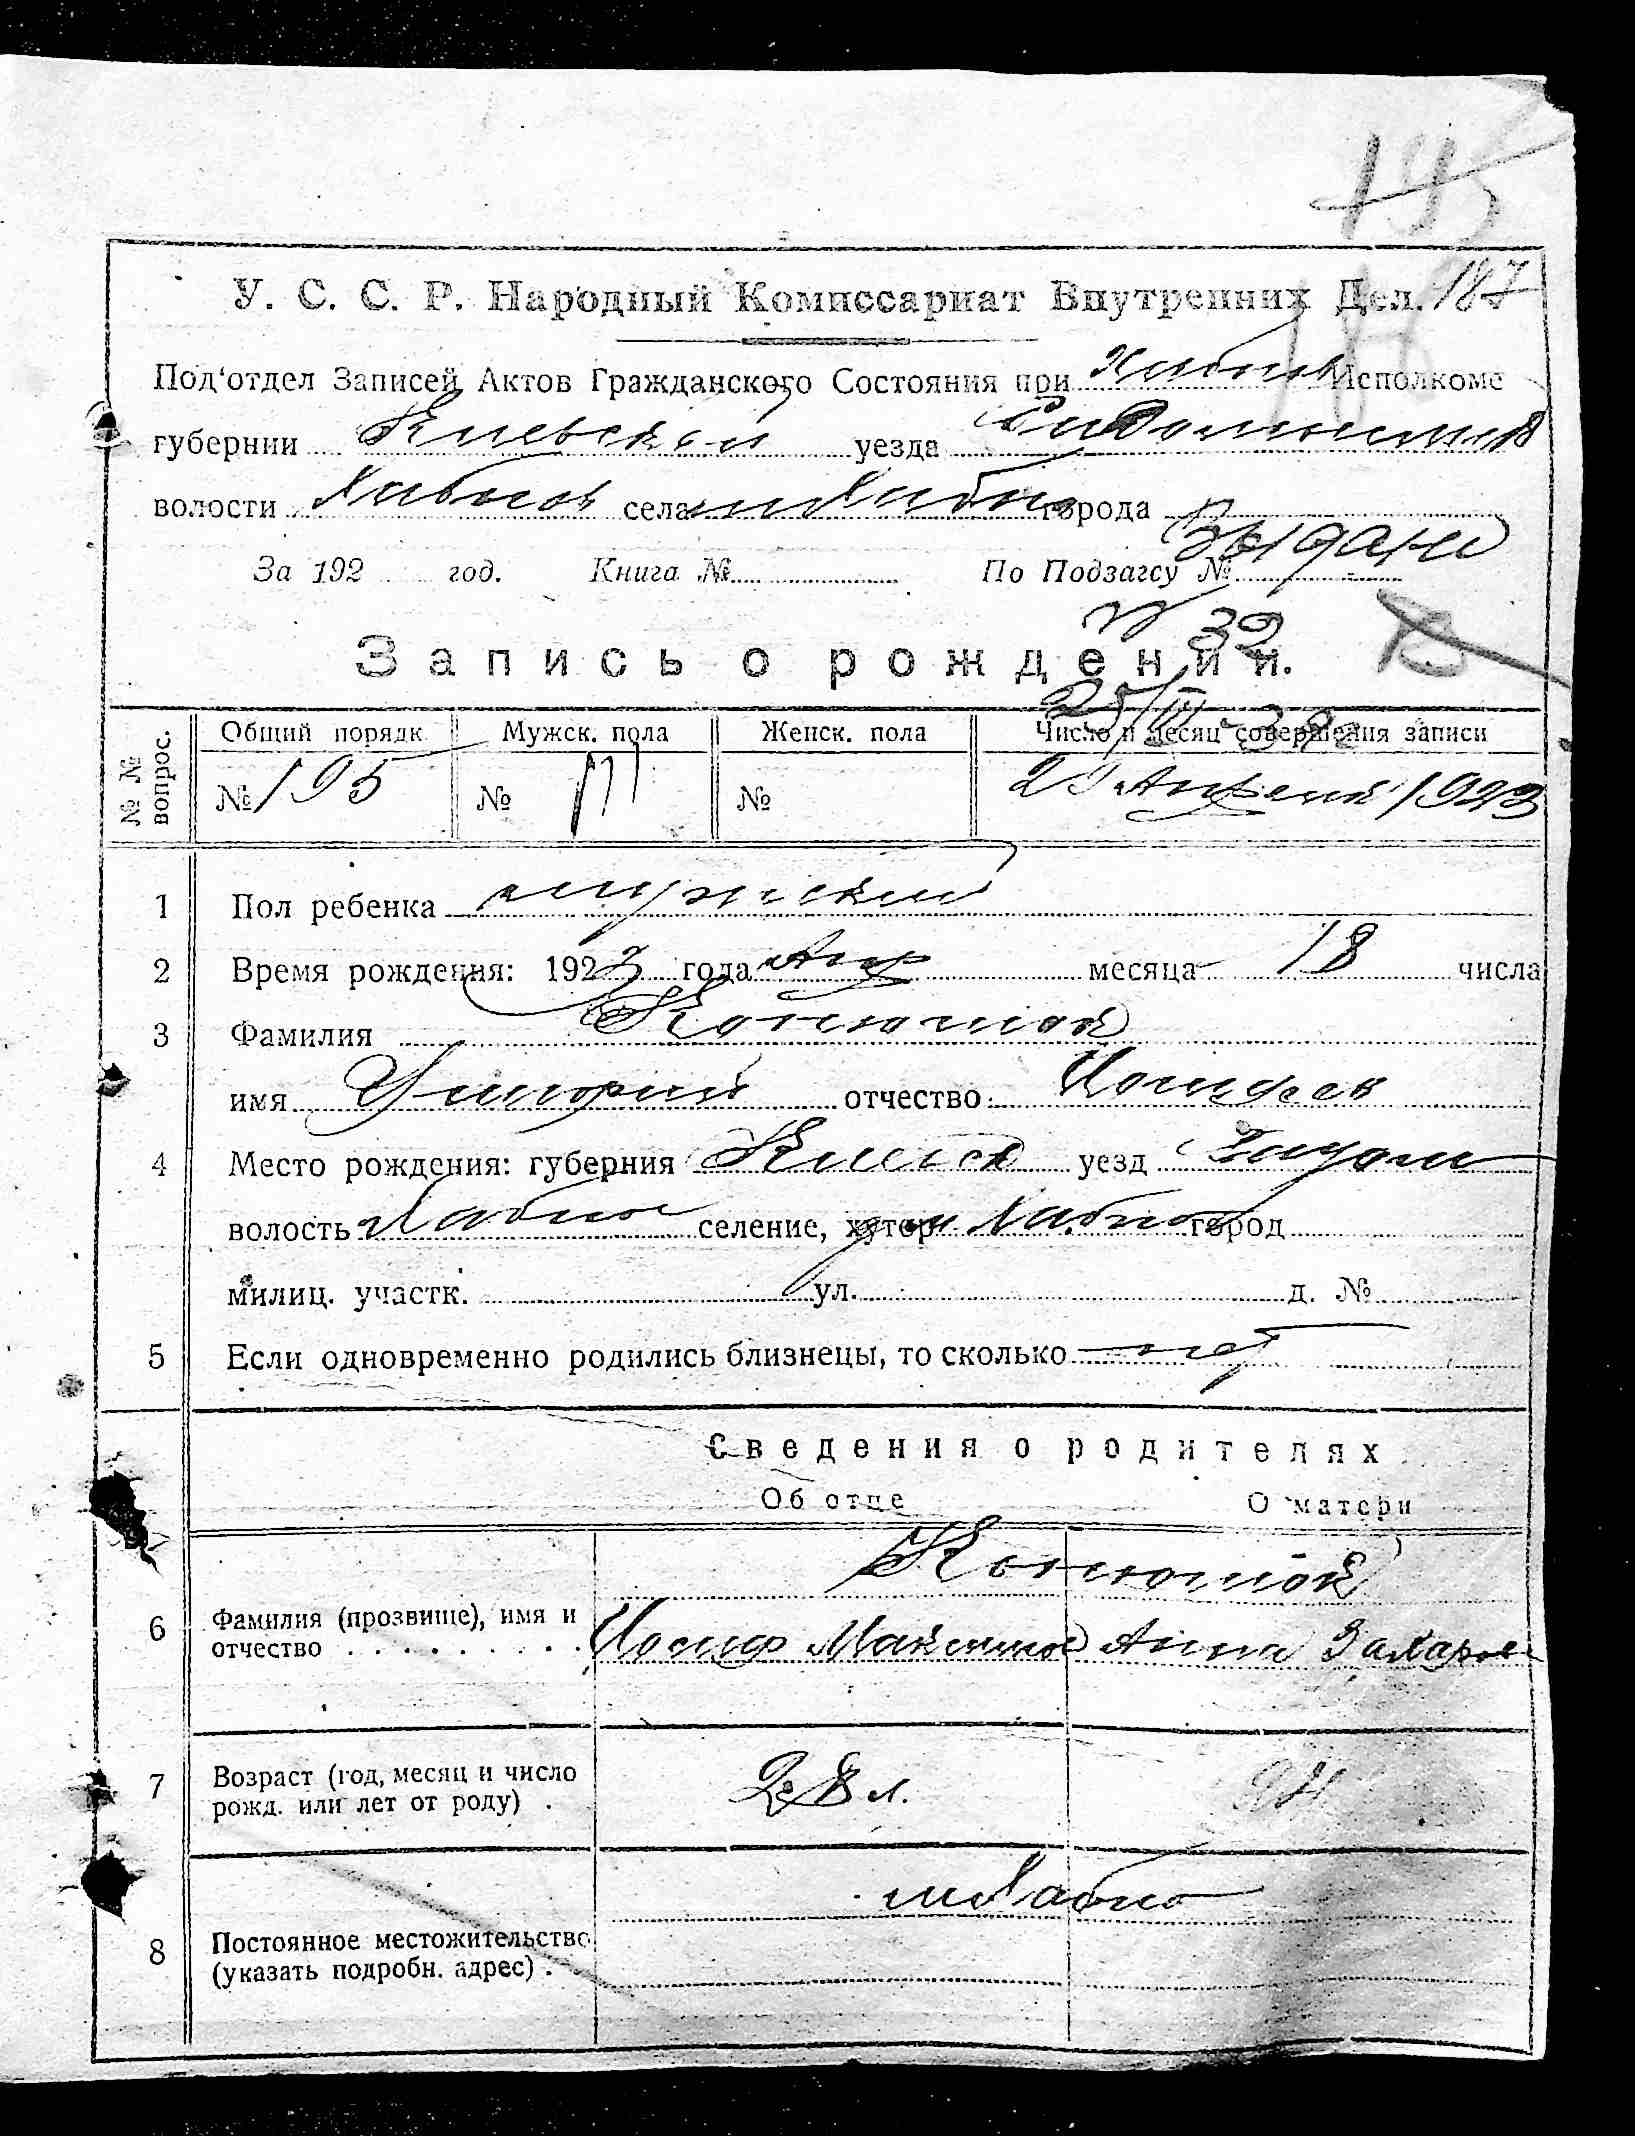 У. С. С. Р. Народный Комиссариат Внутренних Дел. 187
Под'отдел Записей Актов Гражданского Состояния при Хабнов Исполкоме
губернии Киевской уезда
волости Хабнов села м Хабно города
Выдано
За 192 год. Книга № По Подзагсу №
№ 32
Запись о рождении.
№ № вопрос. Общий порядк. Мужск. пола Женск. пола Число и месяц совершения записи
№ 195 № 111 № Апреля 1923
1 Пол ребенка мужской
2 Время рождения: 1923 года Апр месяца 18 числа
3 Фамилия Конюшок
имя отчество Иосифов
4 Место рождения: губерния Киевск уезд Радом
волость Хабное селение, хутор м Хабное город
милиц. участк. ул. д. №
5 Если одновременно родились близнецы, то сколько нет
Сведения о родителях
Об отце О матери
Конюшок
6 Фамилия (прозвище), имя и
отчество Иосиф Максимов Анна Захаров
7 Возраст (год, месяц и число
рожд. или лет от роду) 28 л. 24
м Хабно
8 Постоянное местожительство
(указать подробн. адрес)